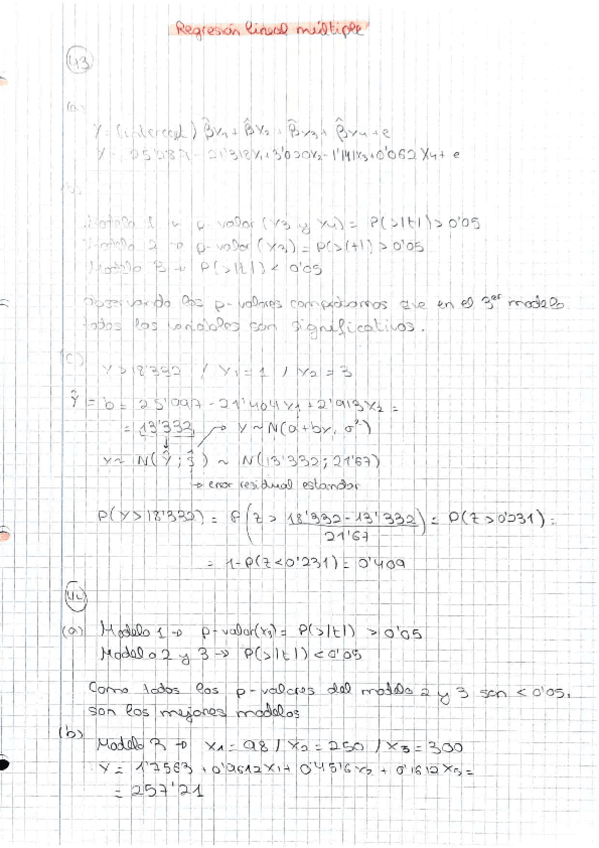 Regresión lineal múltiple
43
(a)
Y = (intercept) β̂x1 + β̂x2 + β̂x3 + β̂x4 + e
Y = 25'287 - 21'318x1 + 3'020x2 - 1'141x3 + 0'062x4 + e
(b)
Modelo 1 → p-valor (x3 y x4) = P(>|t|) > 0'05
Modelo 2 → p-valor (x3) = P(>|t|) > 0'05
Modelo 3 → P(>|t|) < 0'05
Observando los p-valores comprobamos que en el 3er modelo
todos las variables son significativos.
(c)
Y > 18'332 / x1 = 1 / x2 = 3
Ŷ = b = 25'997 - 21'404x1 + 2'913x2 =
= 13'332 → Y ~ N(a + bx, σ²)
Y ~ N(Ŷ; ŝ) ~ N(13'332; 21'67)
→ error residual estandar
P(Y > 18'332) = P(Z > 18'332 - 13'332 / 21'67) = P(Z > 0'231) =
= 1 - P(Z < 0'231) = 0'409
(a) Modelo 1 → p-valor(x3) = P(>|t|) > 0'05
Modelo 2 y 3 → P(>|t|) < 0'05
Como todos los p-valores del modelo 2 y 3 son < 0'05,
son los mejores modelos
(b)
Modelo 2 → x1 = 98 / x2 = 250 / x3 = 300
Y = 1'7563 + 0'9612x1 + 0'4516x2 + 0'1612x3 =
= 257'21